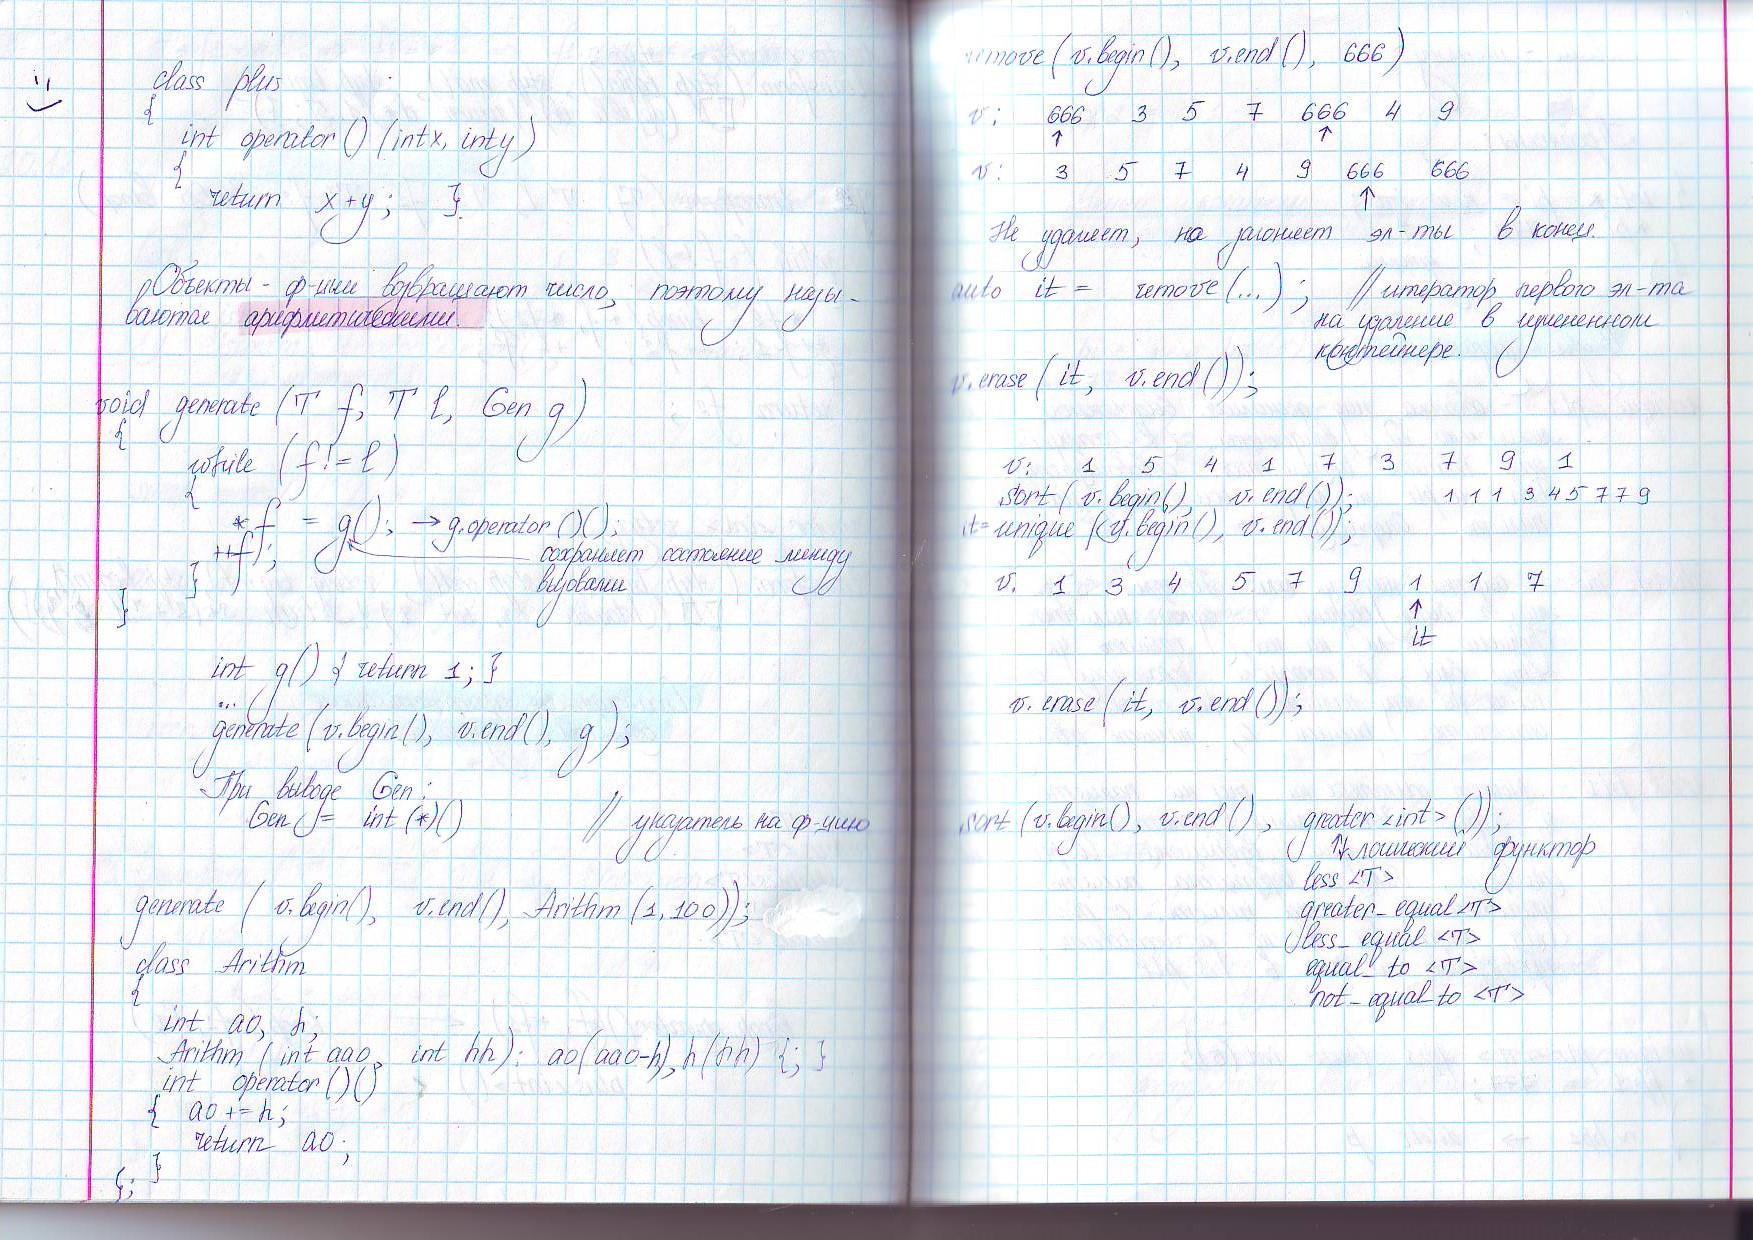 class plus
{
int operator()(int x, int y)
{
return x+y; }
Объекты - ф-ции возвращают число, поэтому назы-
ваются арифметическими.
void generate (T f, T l, Gen g)
{
while (f != l)
{
*f = g(); → g.operator()();
++f; сохраняет состояние между
} вызовами
}
int g() { return 1; }
...
generate (v.begin(), v.end(), g);
При выводе Gen:
Gen = int (*)() // указатель на ф-цию
generate ( v.begin(), v.end(), Arithm (1, 100));
class Arithm
{
int a0, h;
Arithm (int aa0, int hh): a0(aa0-h), h(hh) {; }
int operator()()
{ a0 += h;
return a0;
}
};
remove (v.begin(), v.end(), 666)
v: 666 3 5 7 666 4 9
↑ ↑
v: 3 5 7 4 9 666 666
↑
Не удаляет, на загоняет эл-ты в конец.
auto it = remove (...); // итератор первого эл-та
на удаление в измененном
контейнере.
v.erase (it, v.end());
v: 1 5 4 1 7 3 7 9 1
sort (v.begin(), v.end()); 1 1 1 3 4 5 7 7 9
it = unique (v.begin(), v.end());
v. 1 3 4 5 7 9 1 1 7
↑
it
v. erase (it, v.end());
sort (v.begin(), v.end(), greater <int> ());
↑ логический функтор
less <T>
greater_equal <T>
less_equal <T>
equal_to <T>
not_equal_to <T>